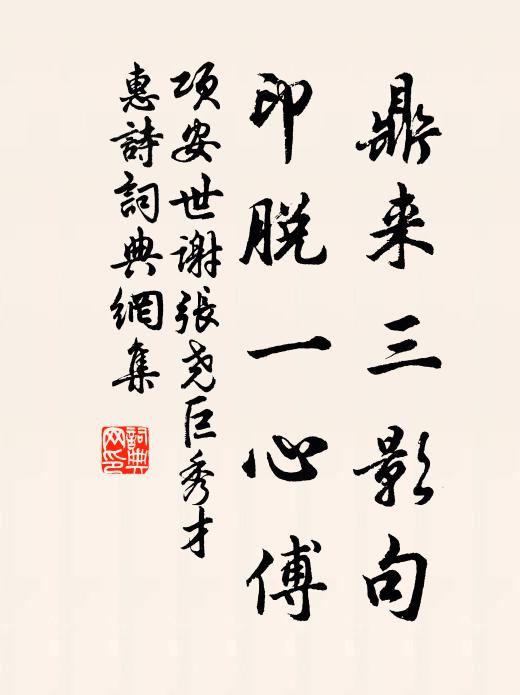 鼎来三影句
印脱一心傅
项安世谢張尧臣秀才
惠詩詞典網集
詞典网印